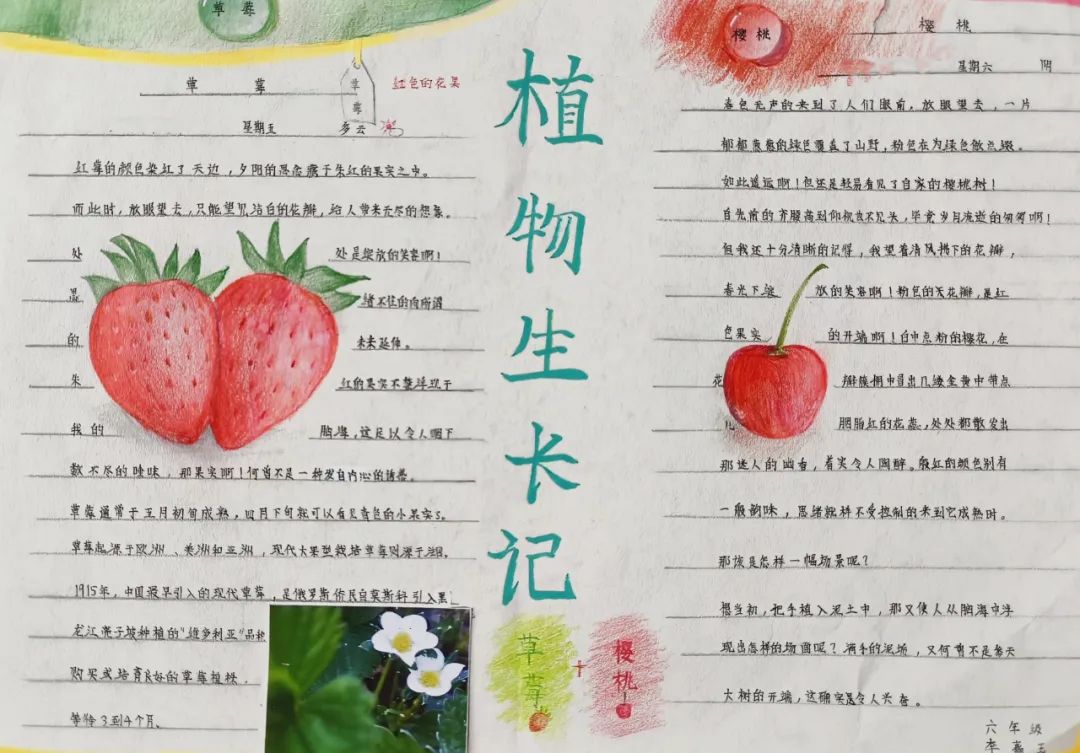 草莓
草莓
草莓
红色的花果
星期五 多云
红莓的颜色染红了天边，夕阳的思念藏于朱红的果实之中。
而此时，放眼望去，只能望见洁白的花瓣，给人带来无尽的想象。
处处是绽放的笑容啊！
思绪不住的向所谓
的未来延伸。
朱红的果实不禁浮现于
我的脑海，这足以令人咽下
数不尽的唾味，那果实啊！何尝不是一种发自内心的诱惑。
草莓通常于五月初旬成熟，四月下旬就可以看见青色的小果实了。
草莓起源于欧洲、美洲和亚洲，现代大果型栽培草莓则源于法国。
1915年，中国最早引入的现代草莓，是俄罗斯侨民自莫斯科引入黑
龙江亮子坡种植的“维多利亚”品种
购买或培育良好的草莓植株，
等待3到4个月、
植物生长记
草莓
+
樱桃
樱桃
樱桃
星期六 阴
春色无声的来到了人们眼前，放眼望去，一片
郁郁葱葱的绿色覆盖了山野，粉色在为绿色做点缀。
如此遥远啊！但还是轻易看见了自家的樱桃树！
自先前的齐腰高到仰视我不见头，毕竟岁月流逝的匆匆啊！
但我还十分清晰的记得，我望着清风拂下的花瓣，
春光下绽放的笑容啊！粉色的芙花瓣，是红
色果实的开端啊！白中点粉的樱花，在
花瓣簇拥中冒出几缕金黄中带点
儿胭脂红的花蕊，处处都散发出
那迷人的幽香，着实令人陶醉。殷红的颜色别有
一般韵味，思绪就料不受控制的来到它成熟时。
那该是怎样一幅场景呢？
想当初，把手植入泥土中，那又使人从脑海中浮
现出怎样的场面呢？满手的泥场，又何尝不是参天
大树的开端，这确实是令人兴奋。
六年级
李嘉玉